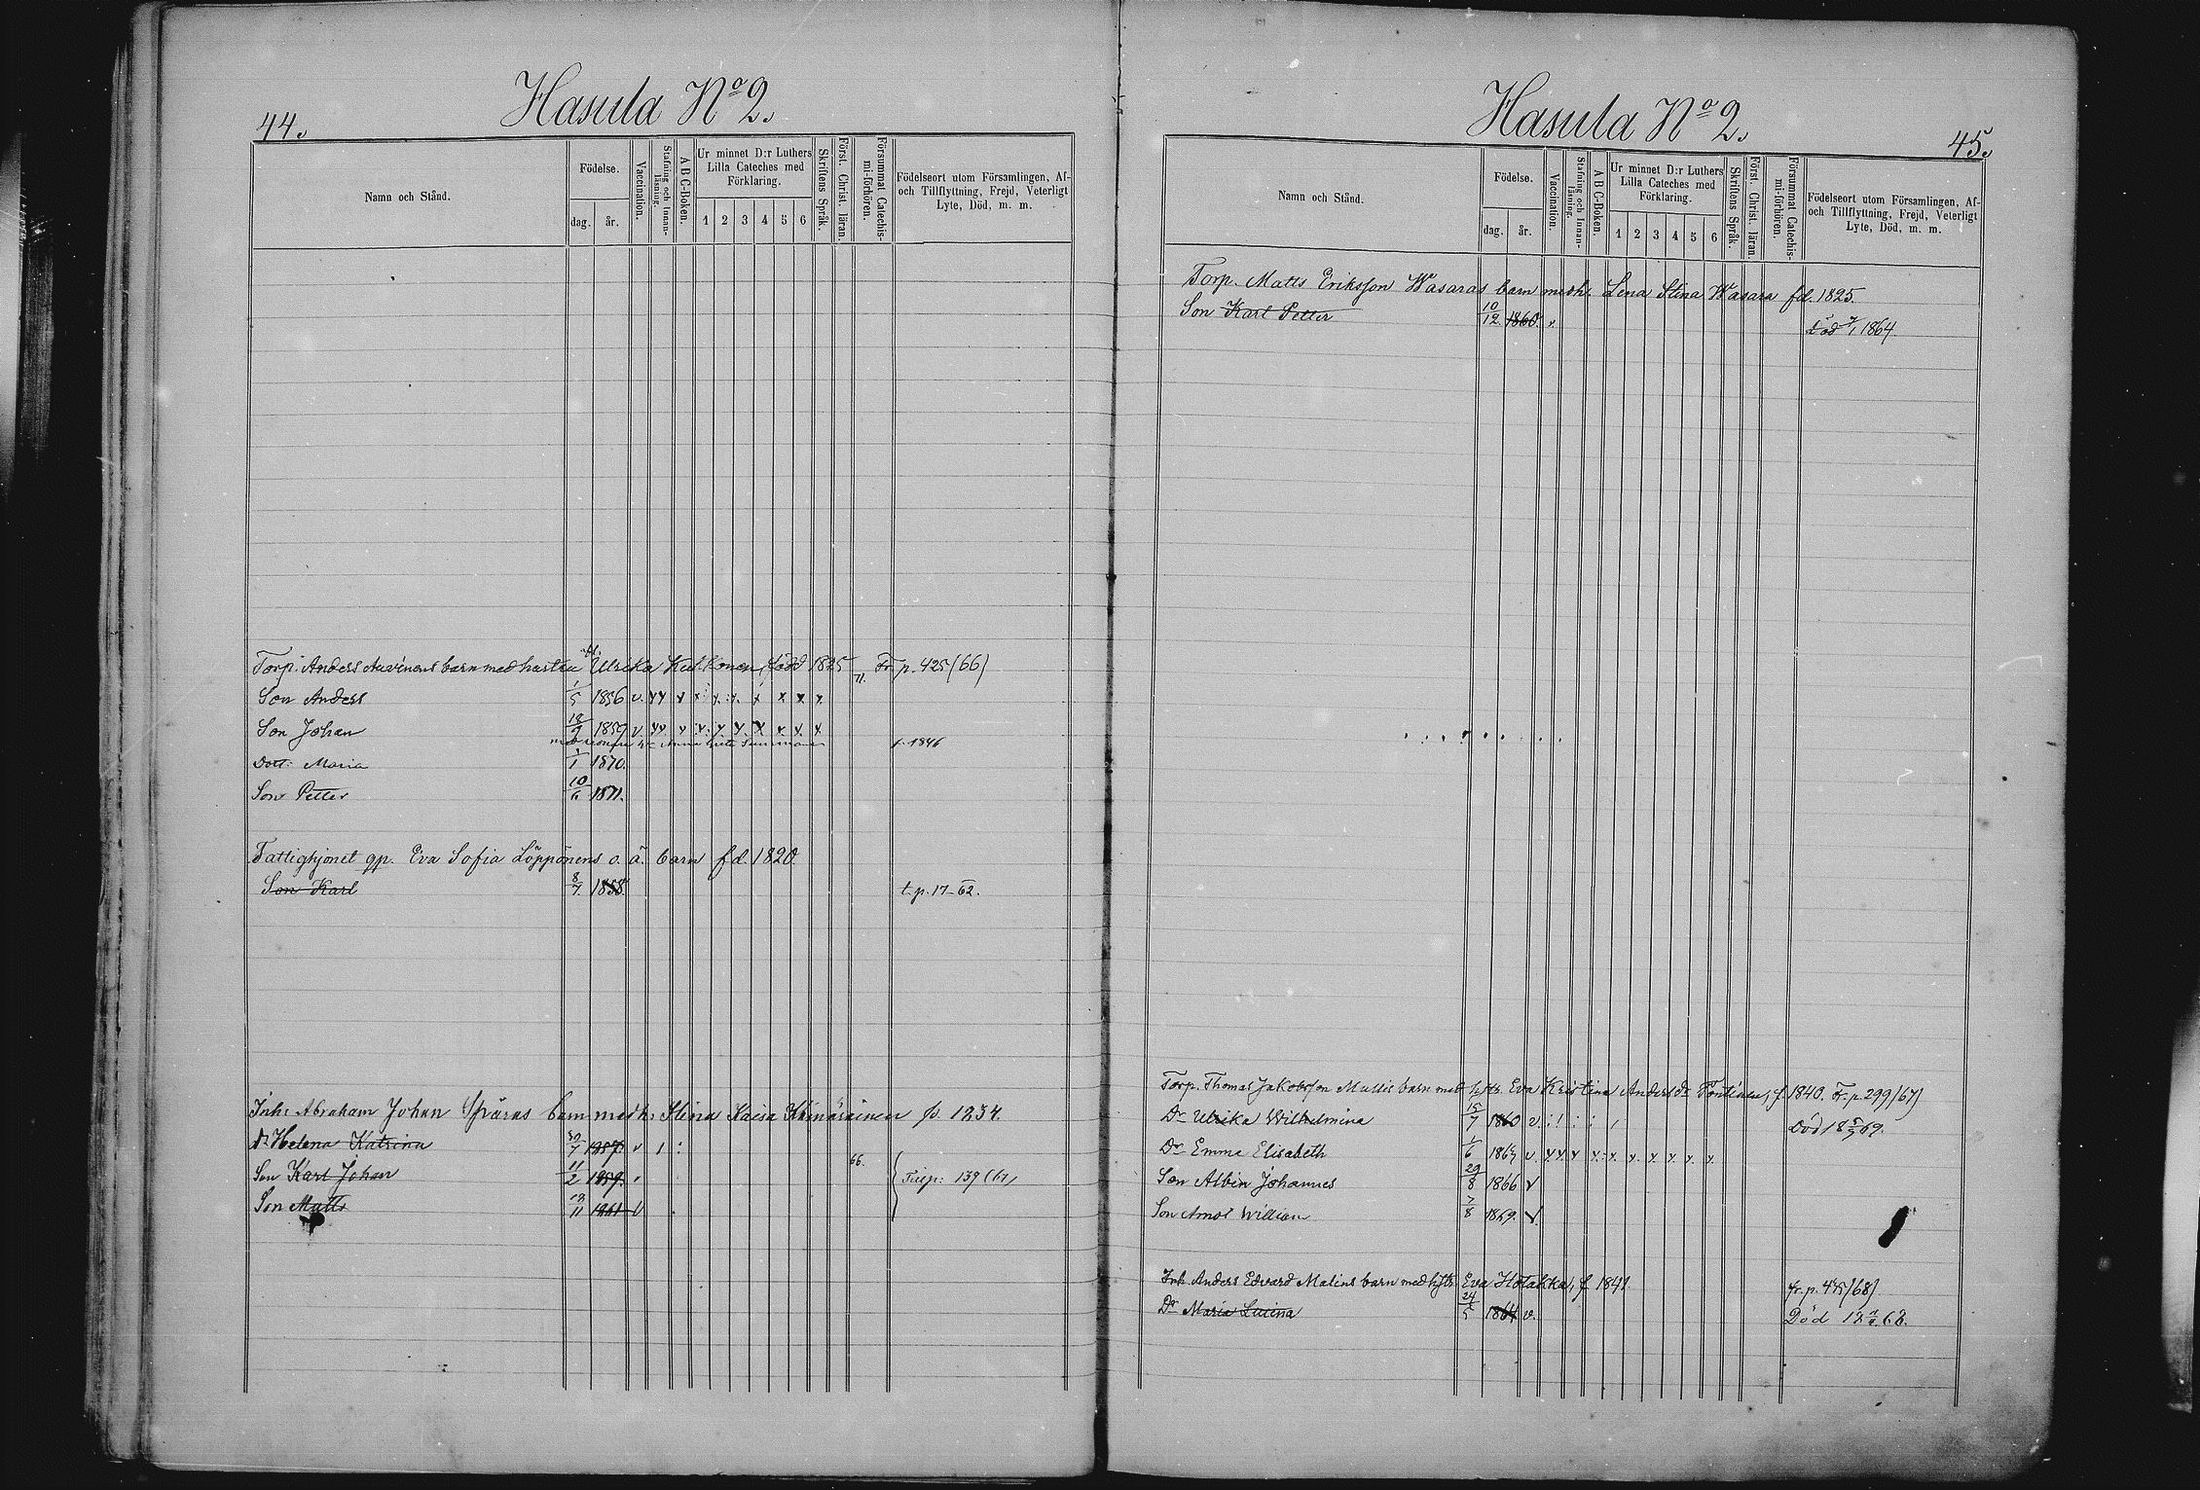 44.
Hasula No 2.
Namn och Stånd.
Födelse.
dag. år.
Vaccination.
Stafning och Innanläsning.
A B C-Boken.
Ur minnet D:r Luthers Lilla Cateches med Förklaring.
1 2 3 4 5 6
Skriftens Språk.
Först. Christ. läran.
Försummat Catechismi-förhören.
Födelseort utom Församlingen, Af- och Tillflyttning, Frejd, Veterligt Lyte, Död, m. m.
Torp. Anders Auvinens barn med hustru Ulrika född 1825 Fr. p. 425/66)
Son Anders 1/5 1856 v.
Son Johan 18/9 1859 v.
Anna f. 1846
Dott: Maria 1/1 1870.
Son Petter 10/6 1871.
Fattighjonet qp. Eva Sofia Löppönens o. ä. barn fd. 1820.
Son Karl 8/7 1858. t. p. 17-62.
Inh: Abraham Johan barn med h: Stina Kaisa f. 1834.
Dr Helena Katrina 1857 v
Son Karl Johan 11/2 1859. 66. 139 (67)
Son Matts 18/11 1861 v
45.
Hasula No 2.
Namn och Stånd.
Födelse.
dag. år.
Vaccination.
Stafning och Innanläsning.
A B C-Boken.
Ur minnet D:r Luthers Lilla Cateches med Förklaring.
1 2 3 4 5 6
Skriftens Språk.
Först. Christ. läran.
Försummat Catechismi-förhören.
Födelseort utom Församlingen, Af- och Tillflyttning, Frejd, Veterligt Lyte, Död, m. m.
Torp. Matts Eriksson Wasaras barn med h. Lena Stina Wasara fd. 1825.
Son Karl Petter 10/12 1860. v. död 7/1 1864.
Torp. Thomas Jakobsson barn med hstr. Eva Kristina Andersdr f. 1840. Fr. p 299/67)
Dr Ulrika Wilhelmina 15/7 1860 v. Död 18 69.
Dr Emma Elisabeth 1/6 v.
Son Albin Johannes 29/8 1866 v
Son William 7/8 1869. v.
Inh Anders Edvard Malins barn med hstr. Eva f. 1841 fr. p. 475/68)
Dr Maria 24/5 1864 v. Död 18 68.